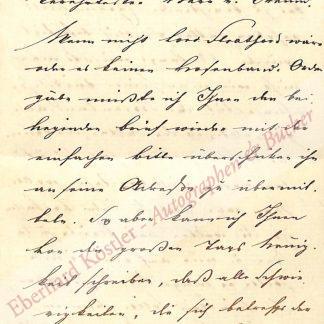 Wenn nicht Lord Stratford wäre
oder es keinen Hosenband-Orden
gäbe müßte ich Ihnen den bei
liegenden Brief wieder mit der
einfachen Bitte überschicken ihn
an seine Adresse zu übermit
teln. So aber kann ich Ihnen
von der großen Tags Neuig
keit schreiben, daß alle Schwie
rigkeiten, die sich betreffs der
Eberhard Köstler - Autographen & Bücher